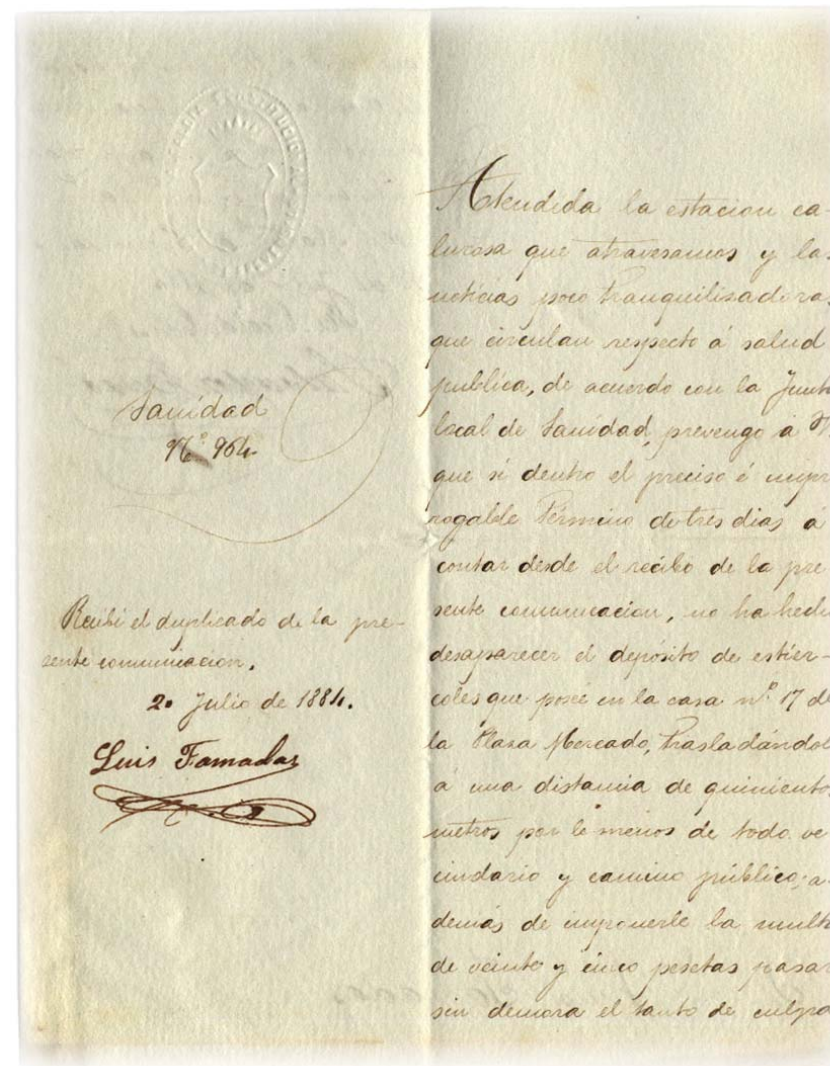 ALCALDIA CONSTITUCIONAL
Sanidad
Nº 964
Recibí el duplicado de la pre-
sente comunicacion.
20 Julio de 1884.
Luis Famadas
Atendida la estacion ca-
lurosa que atravesamos y las
noticias poco tranquilisadoras
que circulan respecto á salud
publica, de acuerdo con la Junta
local de Sanidad, prevengo á V
que si dentro el preciso é impr
rogable término de tres dias á
contar desde el recibo de la pre
sente comunicacion, no ha hecho
desaparecer el depósito de estiér-
coles que posée en la casa nº 17 de
la Plaza Mercado, trasladándol
á una distancia de quinientos
metros por lo menos de todo ve
cindario y camino público; a-
demás de imponerle la multa
de veinte y cinco pesetas pasar
sin demora el tanto de culpa